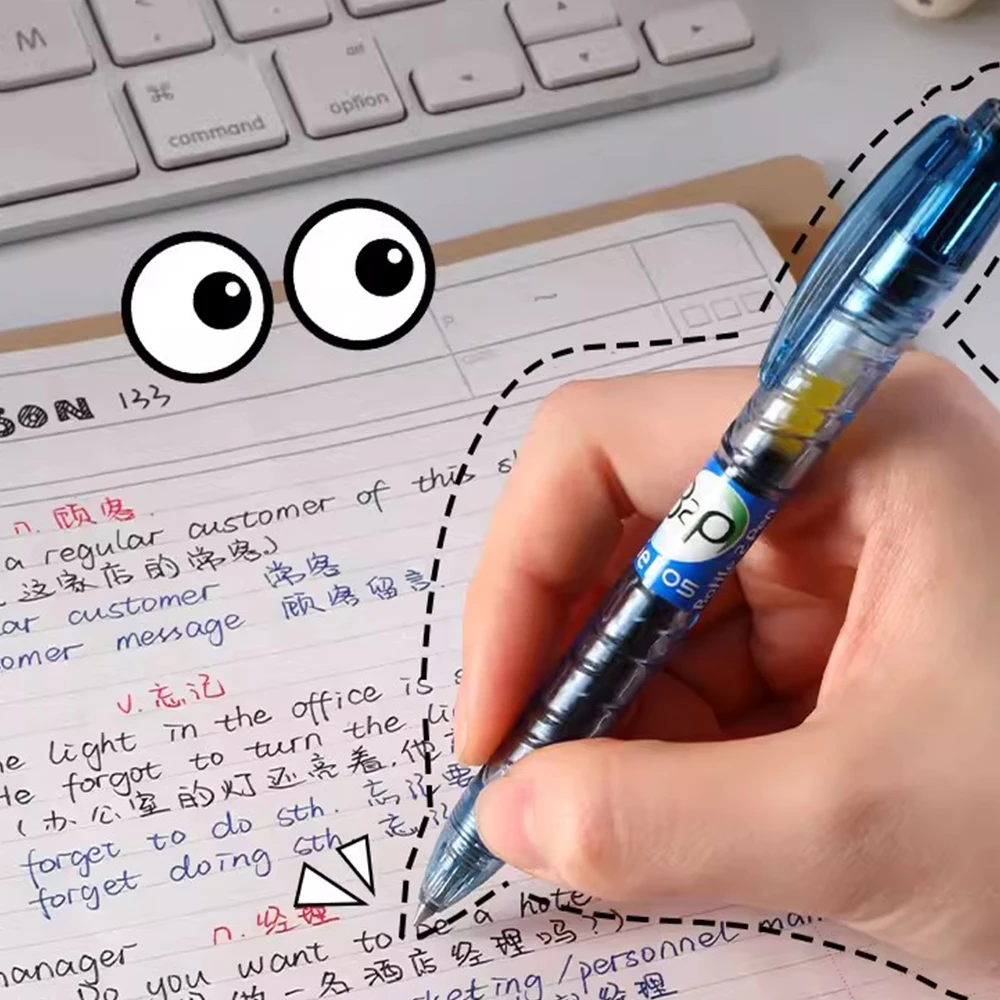 M
⌘
command
alt
option
SON 133
n. 顾客.
a regular customer of this s
这家店的常客.)
ar customer 常客
omer message 顾客留言
v. 忘记
he light in the office is s
He forgot to turn the li
(办公室的灯还亮着.他
forget to do sth. 忘记要
forget doing sth. 忘记
n. 经理
manager
Do you want to be a hote
一名酒店经理吗?)
keting/personnel man
经理
B2P
Bottle 2 Pen
05